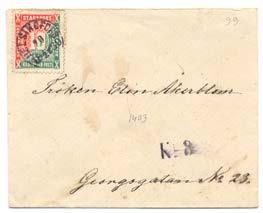 99
STADSPOST
10
Fröken Elin Åkerblom
1403
No 8
Georgsgatan No 23.